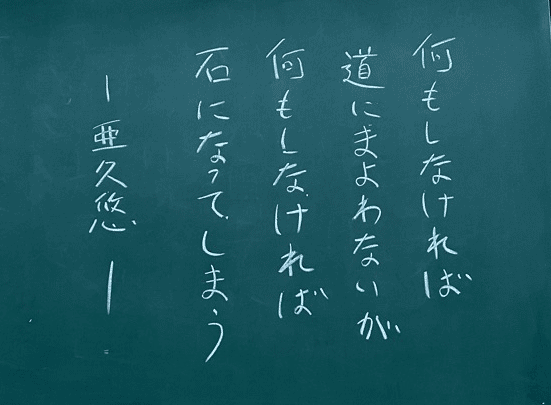 何もしなければ
道にまよわないが
何もしなければ
石になってしまう
ー亜久悠ー